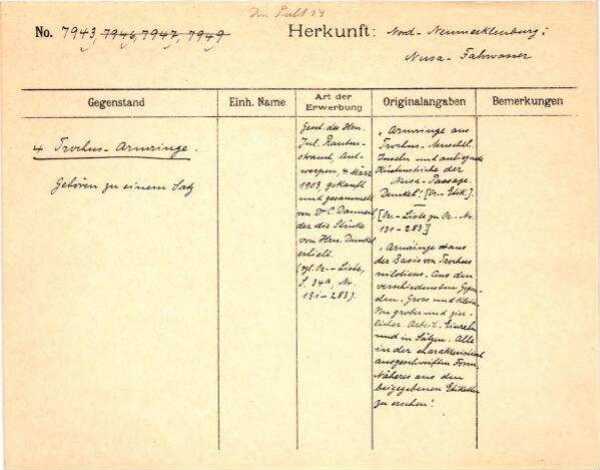 Den Pult 14
No. 7943, 7946, 7947, 7949
Herkunft: Nord-Neumecklenburg:
Nusa-Fahrwasser
Gegenstand
Einh. Name
Art der Erwerbung
Originalangaben
Bemerkungen
4 Trochus-Armringe.
Gehören zu einem Satz
Gesch. des Hrn.
Jul. Rauten-
strauch, Ant-
werpen, 4 März
1903, gekauft
und gesammelt
von Dr C. Danneil
der die Stücke
von Hrn. Dunkel
erhielt.
(vgl. Or.-Liste,
S. 34a, No.
131-283).
"Armringe aus
Trochus.
Inseln und anliegende
Küstenstriche der
Nusa-Passage.
Dunkel". [Or.-Etik.].
[Or.-Liste zu Or.-No.
131-283]
"Armringe aus
der Basis von Trochus
niloticus. Aus den
verschiedensten Gegen-
den. Gross und klein.
Von grober und zier-
licher Arbeit. Einzeln
und in Sätzen. Alle
in der charakteristisch
ausgeschweiften Form.
Näheres aus den
beigegebenen Etiketten
zu ersehen".